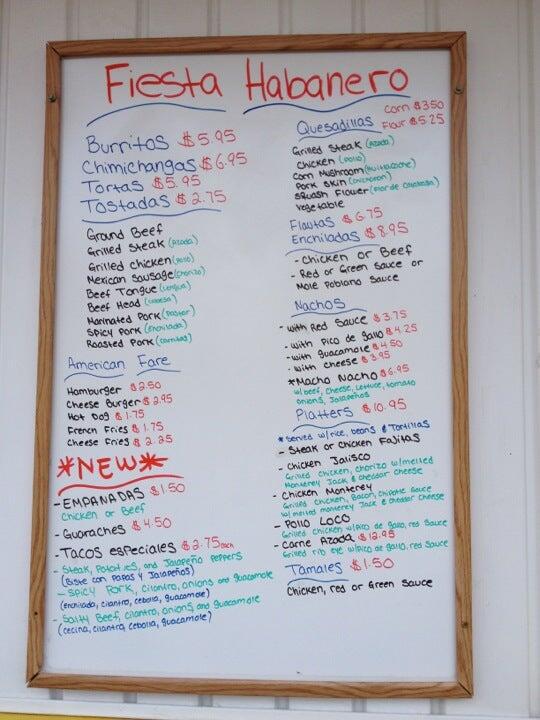 Fiesta Habanero
Burritos $5.95
Chimichangas $6.95
Tortas $5.95
Tostadas $2.75
Ground Beef
Grilled Steak (Azada)
Grilled chicken (Pollo)
Mexican Sausage (Chorizo)
Beef Tongue (Lengua)
Beef Head (Cabesa)
Marinated Pork (Pastor)
Spicy Pork (Enchilada)
Roasted Pork (Carnitas)
American Fare
Hamburger $2.50
Cheese Burger $2.95
Hot Dog $1.75
French Fries $1.75
Cheese Fries $2.25
*NEW*
- EMPANADAS $1.50
Chicken or Beef
- Guaraches $4.50
- Tacos especiales $2.75 each
- Steak, Potatoes, and Jalapeño Peppers
(Biste con Papas y Jalapeños)
- Spicy Pork, cilantro, onions and guacamole
(enchilada, cilantro, cebolla, guacamole)
- Salty Beef, cilantro, onions, and guacamole
(cecina, cilantro, cebolla, guacamole)
Quesadillas Corn $3.50
Flour $5.25
Grilled Steak (Azada)
Chicken (Pollo)
Corn Mushroom (Huitlacoche)
Pork Skin (Chicharon)
Squash Flower (Flor de Calabasa)
Vegetable
Flautas $6.75
Enchiladas $8.95
- Chicken or Beef
- Red or Green Sauce or
Mole Poblano Sauce
Nachos
- with Red Sauce $3.75
- with Pico de Gallo $4.25
- with guacamole $4.50
- with cheese $3.95
*Macho Nacho $6.95
w/beef, cheese, lettuce, tomato
onions, Jalapeños
Platters $10.95
*served w/rice, beans & Tortillas
- Steak or Chicken Fajitas
- Chicken Jalisco
Grilled Chicken, Chorizo w/melted
Monterey Jack & cheddar cheese
- Chicken Monterey
Grilled Chicken, Bacon, Chipotle Sauce
w/melted monterey Jack & cheddar cheese
- Pollo Loco
Grilled chicken w/Pico de Gallo, red Sauce
- Carne Azada $12.95
Grilled rib eye w/Pico de Gallo, red Sauce
Tamales $1.50
Chicken, red or Green Sauce